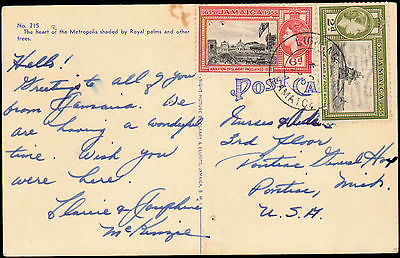 No. 215
The heart of the Metropolis shaded by Royal palms and other
trees.
Hello!
Greetings to all of you
from Jamaica. We
are having a wonderful
time. Wish you
were here.
& Josephine
McKinzie
1655 JAMAICA 1955
ABOLITION OF SLAVERY PROCLAIMED
6d
2d
JAMAICA
POST CA
Nurses &
3rd Floor
Pontiac General Hosp
Pontiac, Mich.
U.S.A.